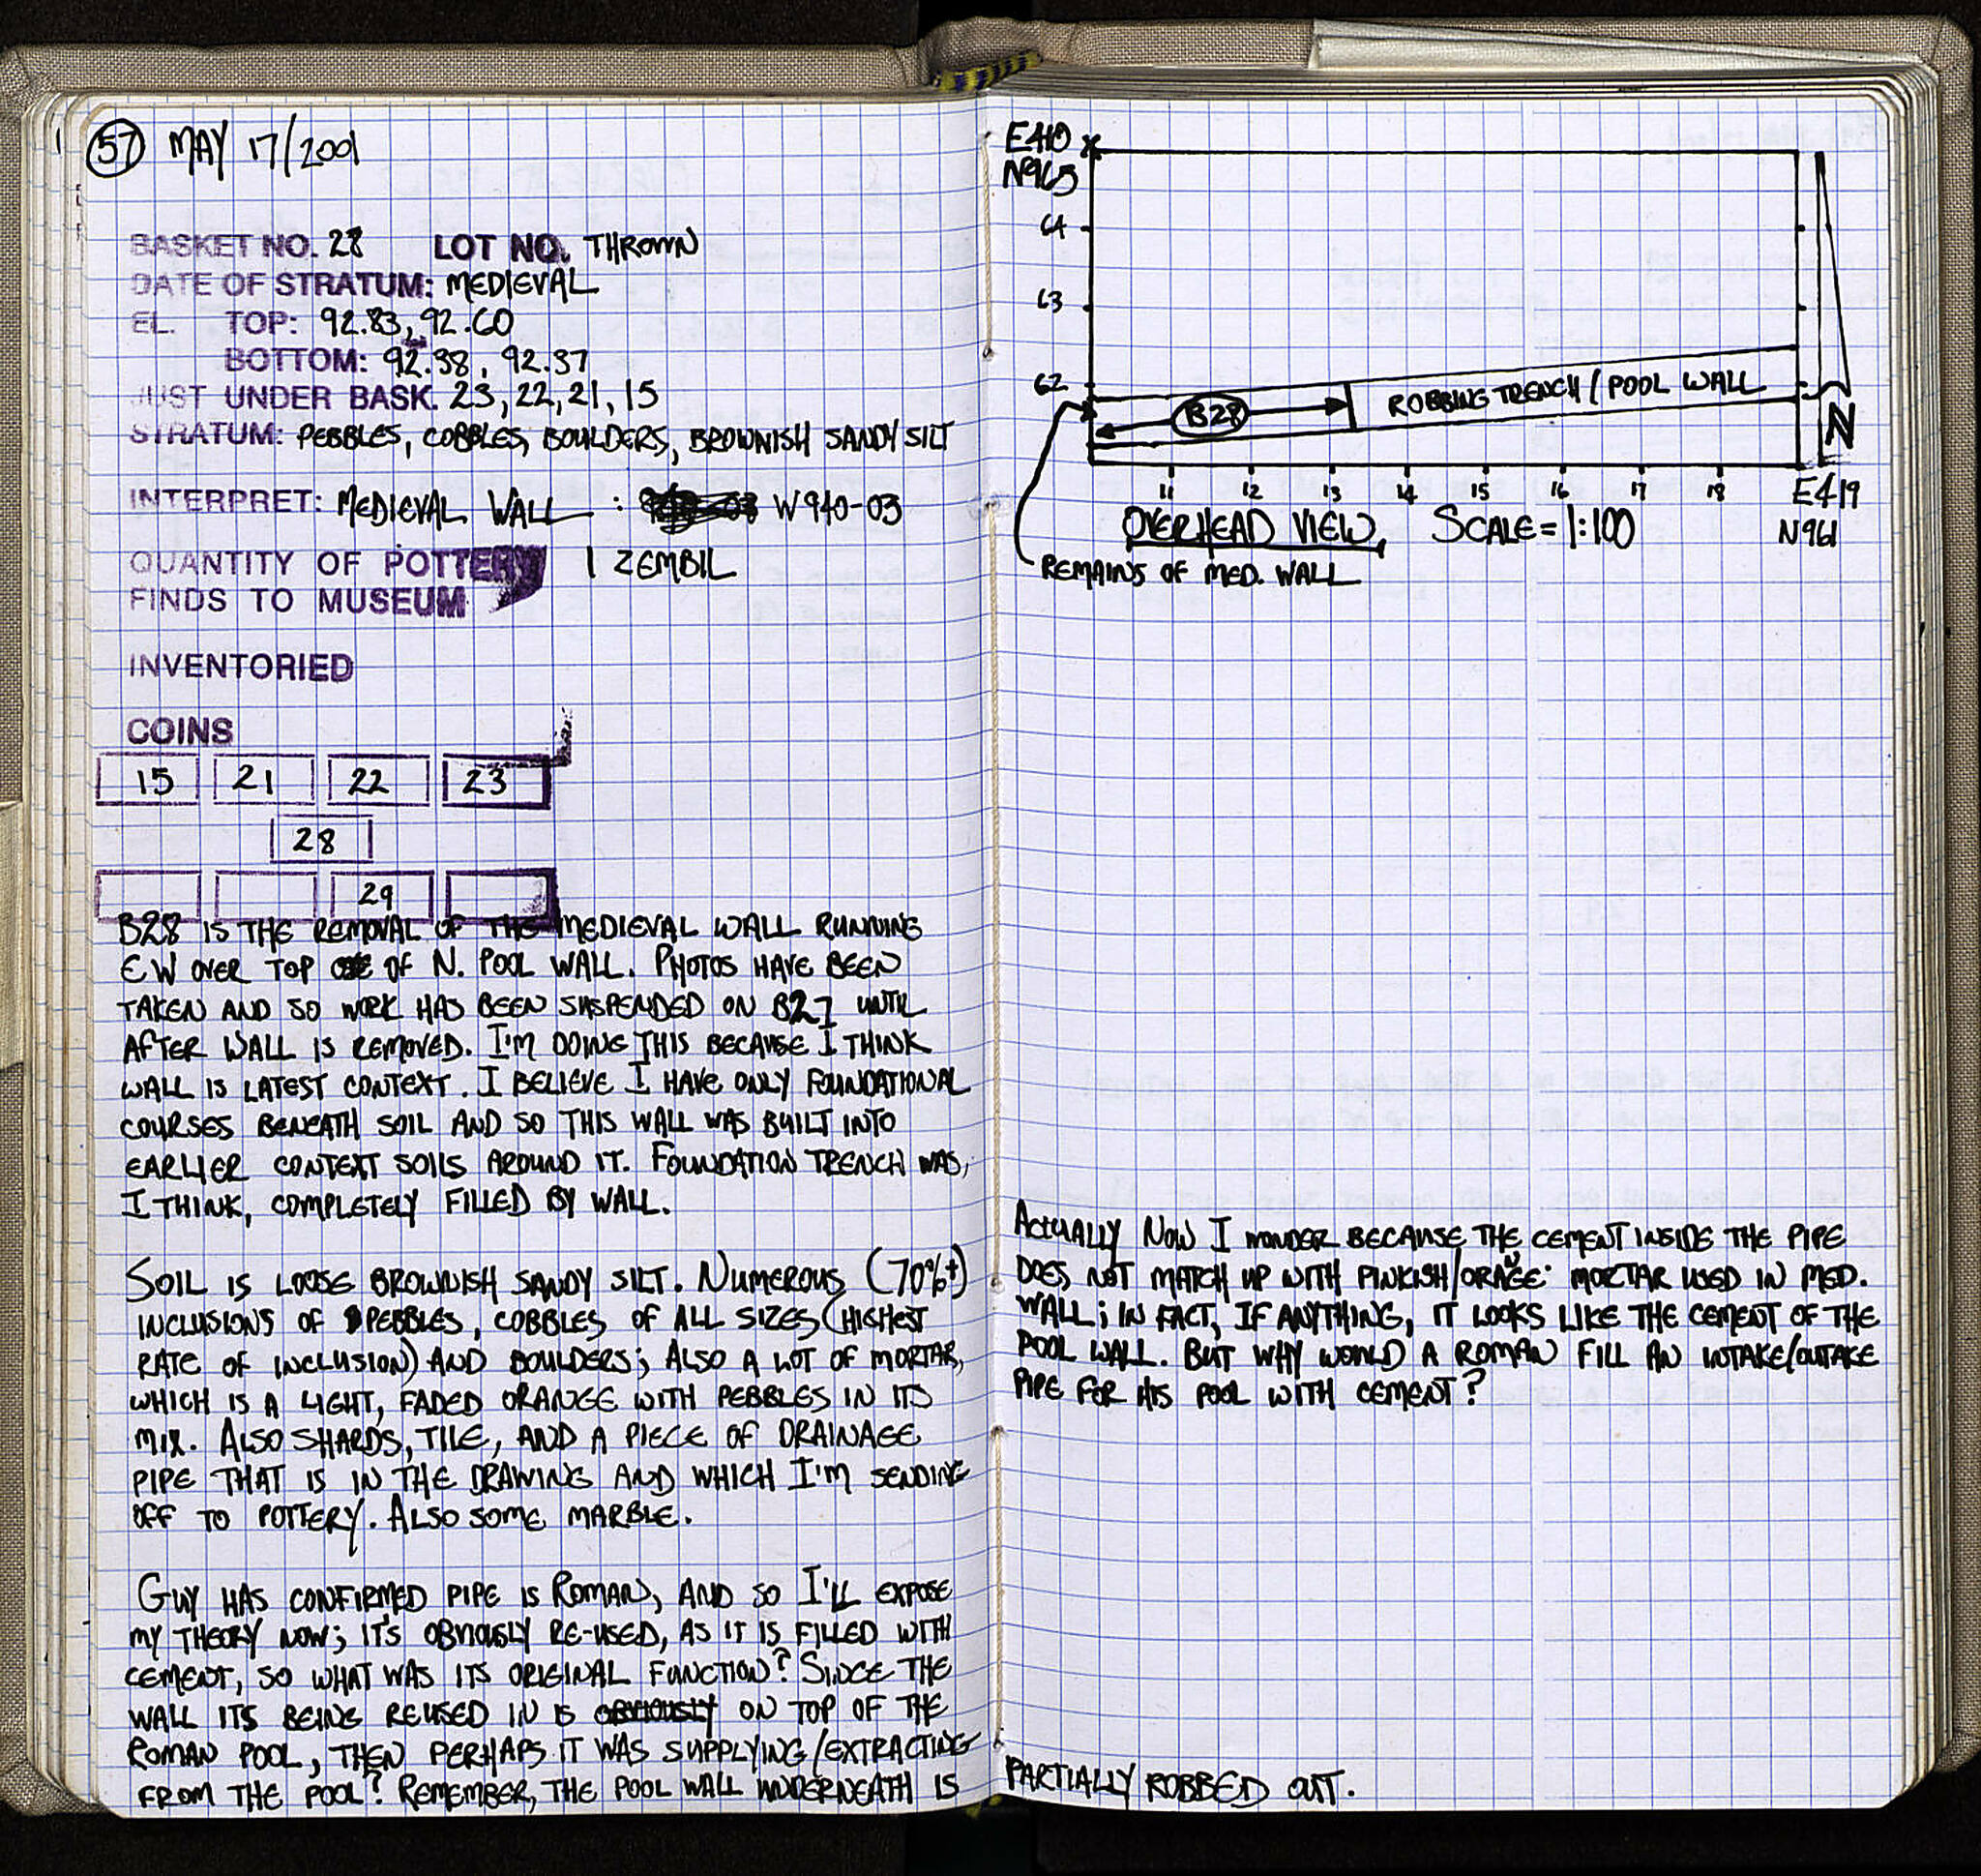 57 MAY 17/2001
BASKET NO. 28 LOT NO. THROWN
DATE OF STRATUM: MEDIEVAL
EL. TOP: 92.83, 92.60
BOTTOM: 92.38, 92.37
JUST UNDER BASK. 23, 22, 21, 15
STRATUM: PEBBLES, COBBLES, BOULDERS, BROWNISH SANDY SILT
INTERPRET: MEDIEVAL WALL : W 940-03
QUANTITY OF POTTERY 1 ZEMBIL
FINDS TO MUSEUM
INVENTORIED
COINS
15 21 22 23
28
29
B28 IS THE REMOVAL OF THE MEDIEVAL WALL RUNNING
EW OVER TOP OF N. POOL WALL. PHOTOS HAVE BEEN
TAKEN AND SO WORK HAS BEEN SUSPENDED ON B27 UNTIL
AFTER WALL IS REMOVED. I'M DOING THIS BECAUSE I THINK
WALL IS LATEST CONTEXT. I BELIEVE I HAVE ONLY FOUNDATIONAL
COURSES BENEATH SOIL AND SO THIS WALL WAS BUILT INTO
EARLIER CONTEXT SOILS AROUND IT. FOUNDATION TRENCH WAS,
I THINK, COMPLETELY FILLED BY WALL.
SOIL IS LOOSE BROWNISH SANDY SILT. NUMEROUS (70%+)
INCLUSIONS OF PEBBLES, COBBLES OF ALL SIZES (HIGHEST
RATE OF INCLUSION) AND BOULDERS; ALSO A LOT OF MORTAR,
WHICH IS A LIGHT, FADED ORANGE WITH PEBBLES IN ITS
MIX. ALSO SHARDS, TILE, AND A PIECE OF DRAINAGE
PIPE THAT IS IN THE DRAWING AND WHICH I'M SENDING
OFF TO POTTERY. ALSO SOME MARBLE.
GUY HAS CONFIRMED PIPE IS ROMAN, AND SO I'LL EXPOSE
MY THEORY NOW; IT'S OBVIOUSLY RE-USED, AS IT IS FILLED WITH
CEMENT, SO WHAT WAS ITS ORIGINAL FUNCTION? SINCE THE
WALL ITS BEING REUSED IN IS OBVIOUSLY ON TOP OF THE
ROMAN POOL, THEN PERHAPS IT WAS SUPPLYING/EXTRACTING
FROM THE POOL? REMEMBER, THE POOL WALL UNDERNEATH IS
E410
N965
64
63
62
B28 ROBBING TRENCH / POOL WALL
N
11 12 13 14 15 16 17 18 E419
N961
OVERHEAD VIEW, SCALE = 1:100
REMAINS OF MED. WALL
ACTUALLY NOW I WONDER BECAUSE THE CEMENT INSIDE THE PIPE
DOES NOT MATCH UP WITH PINKISH/ORANGE MORTAR USED IN MED.
WALL; IN FACT, IF ANYTHING, IT LOOKS LIKE THE CEMENT OF THE
POOL WALL. BUT WHY WOULD A ROMAN FILL AN INTAKE/OUTAKE
PIPE FOR HIS POOL WITH CEMENT?
PARTIALLY ROBBED OUT.